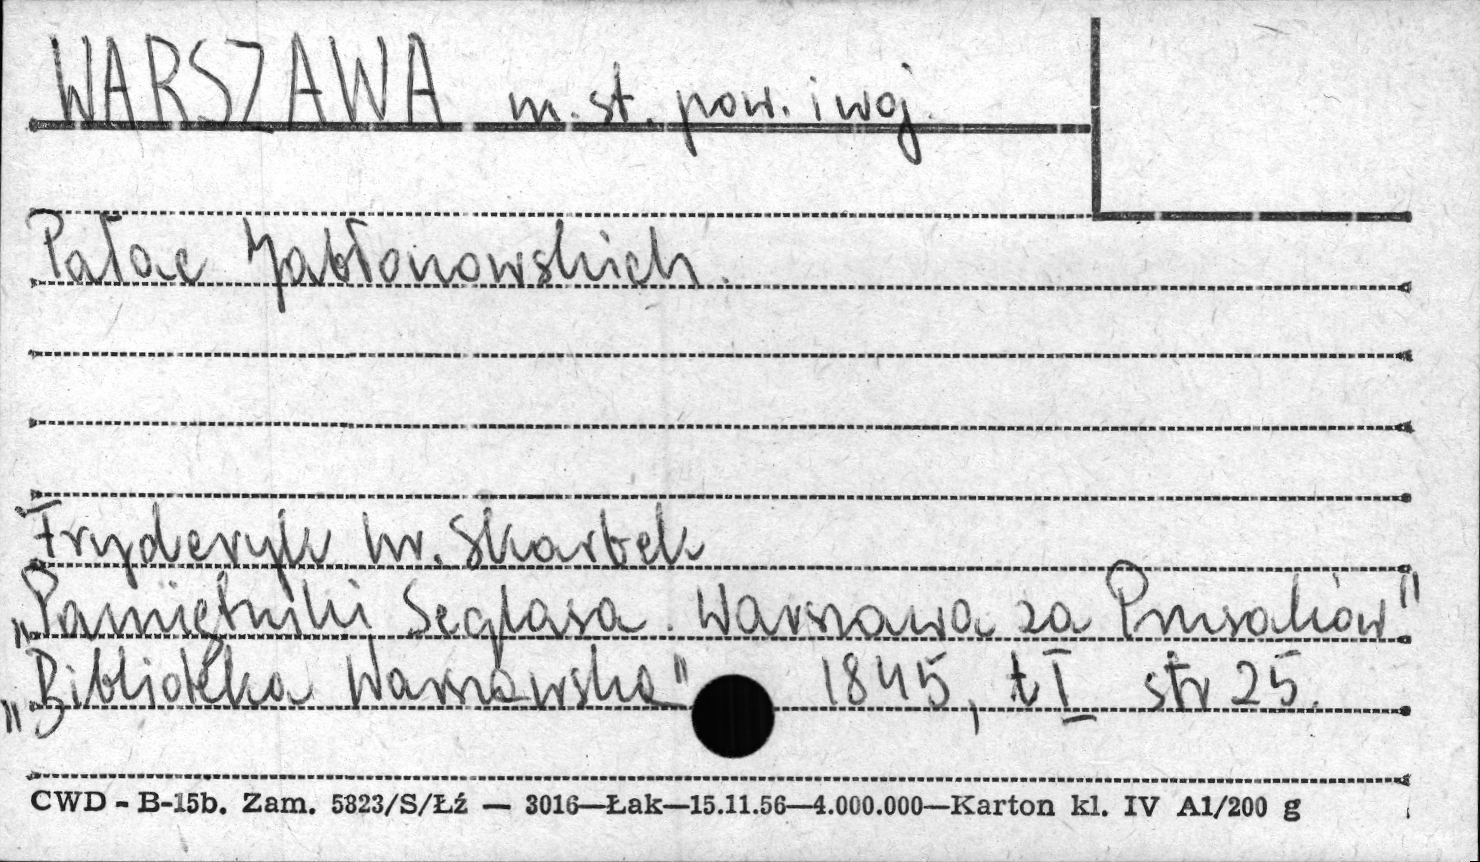 WARSZAWA m. st. pow. i woj.
Pałac Jabłonowskich.
Fryderyk hr. Skarbek
„Pamiętniki Seglasa. Warszawa za Prusaków"
„Biblioteka Warszawska" 1845, t I str 25.
CWD - B-15b. Zam. 5823/S/Łź — 3016—Łak—15.11.56—4.000.000—Karton kl. IV A1/200 g